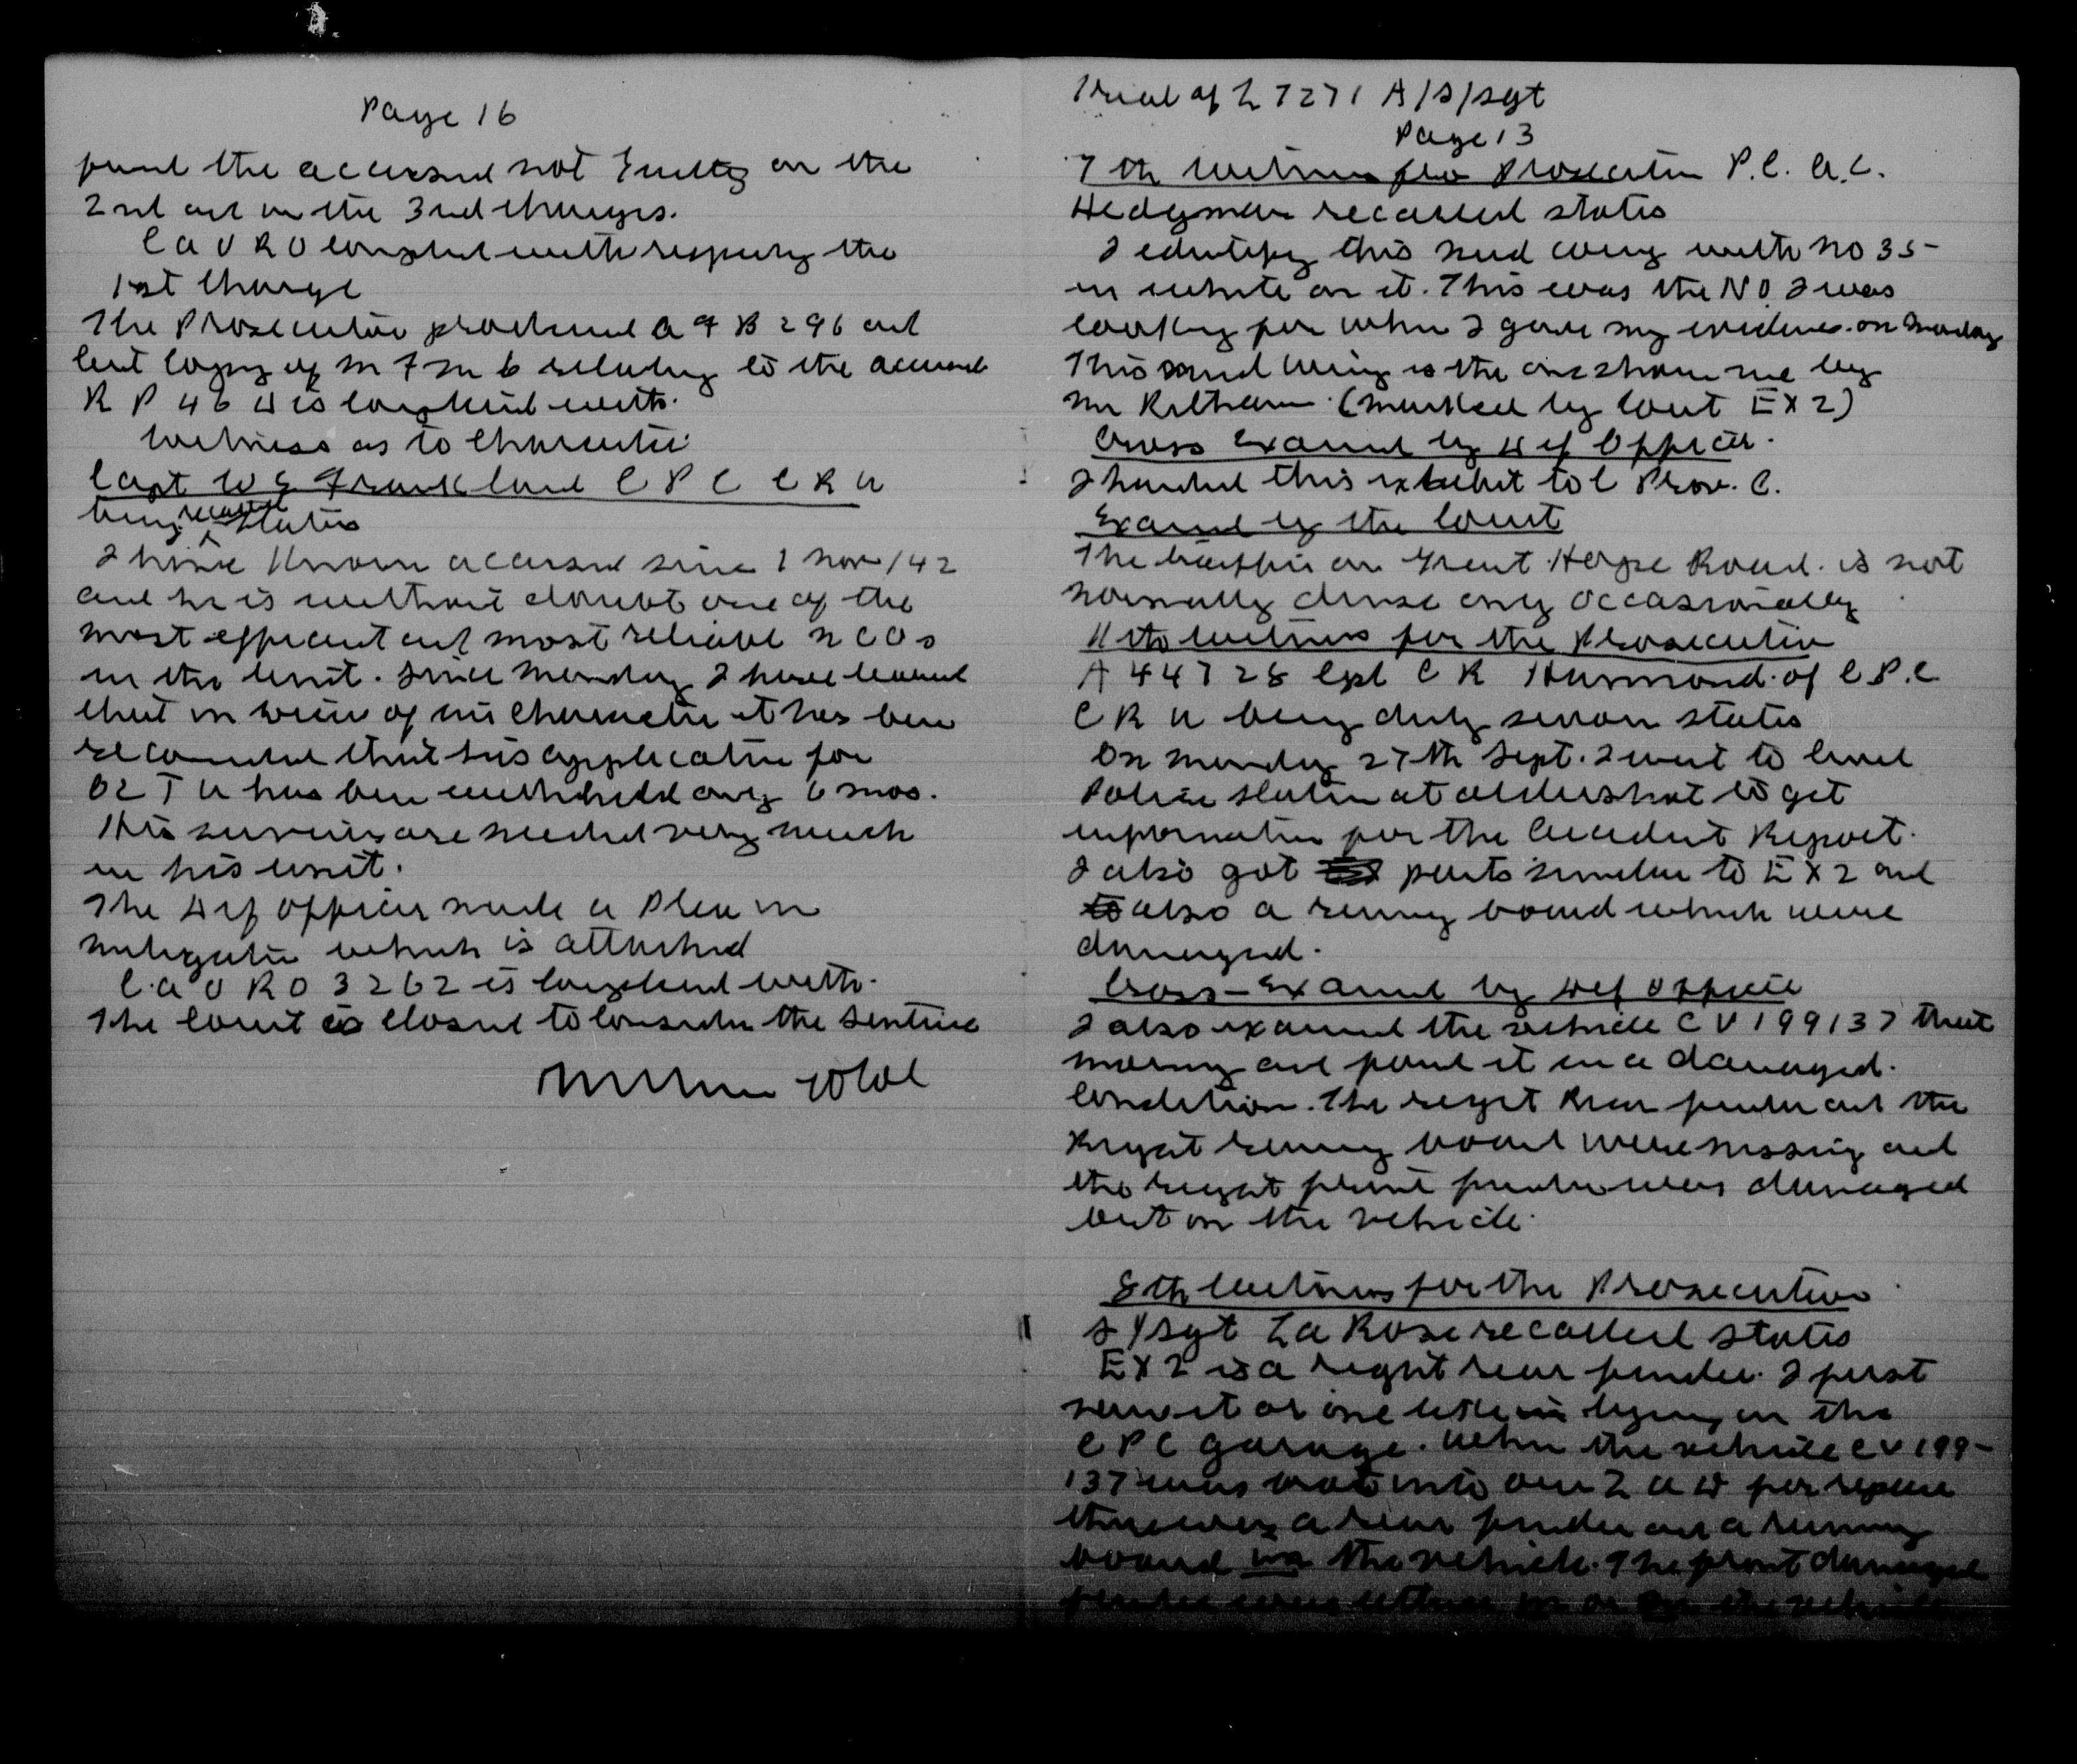 Page 16
found the accused not Guilty on the
2nd and on the 3rd charges.
C A O R O complied with respecting the
1st Charge
The Prosecution produced A F B 296 and
cert copy of M F M 6 relating to the accused
R P 46 is complied with.
Witness as to Character
Capt W G Frankland C P C C R U
being recalled states
I have known accused since 1 Nov/42
and he is without doubt one of the
most efficient and most reliable N C O s
in the unit. Since Monday I have learned
that in view of his Character it has been
recommended that his application for
O C T U has been withheld only 6 mos.
His services are needed very much
in his unit.
The Def officer made a Plea in
mitigation which is attached
C.A O R O 3262 is complied with.
The Court is Closed to consider the Sentence
Trial of L 7271 A/S/Sgt
Page 13
7th Witness for Prosecution P.C. A.C.
Hedgman recalled states
I identify this mud wing with no 35-
in white on it. This was the NO. I was
looking for when I gave my evidence on Monday
This mud wing is the one shown me by
Mr (Marked by Court EX 2)
Cross Examined by Def Officer.
I handed this exhibit to C Prov. C.
Examined by the Court
The traffic on Great Road. is not
normally dense only occasionally
11th witness for the Prosecution
A 44728 Cpl C R Hammond of C P.C
C R U being duly sworn states
On Monday 27th Sept. I went to Civil
Police Station at Aldershot to get
information for the Accident Report.
I also got parts similar to EX 2 and
also a running board which were
damaged.
Cross-Examined by Def Officer
I also examined the vehicle C V 199137 that
morning and found it in a damaged.
condition. The right Rear fender and the
Right running board were missing and
the right front fender was damaged
but on the vehicle.
8th witness for the Prosecution
S/Sgt La Rose recalled states
EX 2 is a right rear fender. I first
saw it or one like it lying in the
C P C garage. When the vehicle C V 199-
137 was brot into our L A D for repair
there was a rear fender and a running
board in the vehicle. The front damaged
fender was either in or on the vehicle